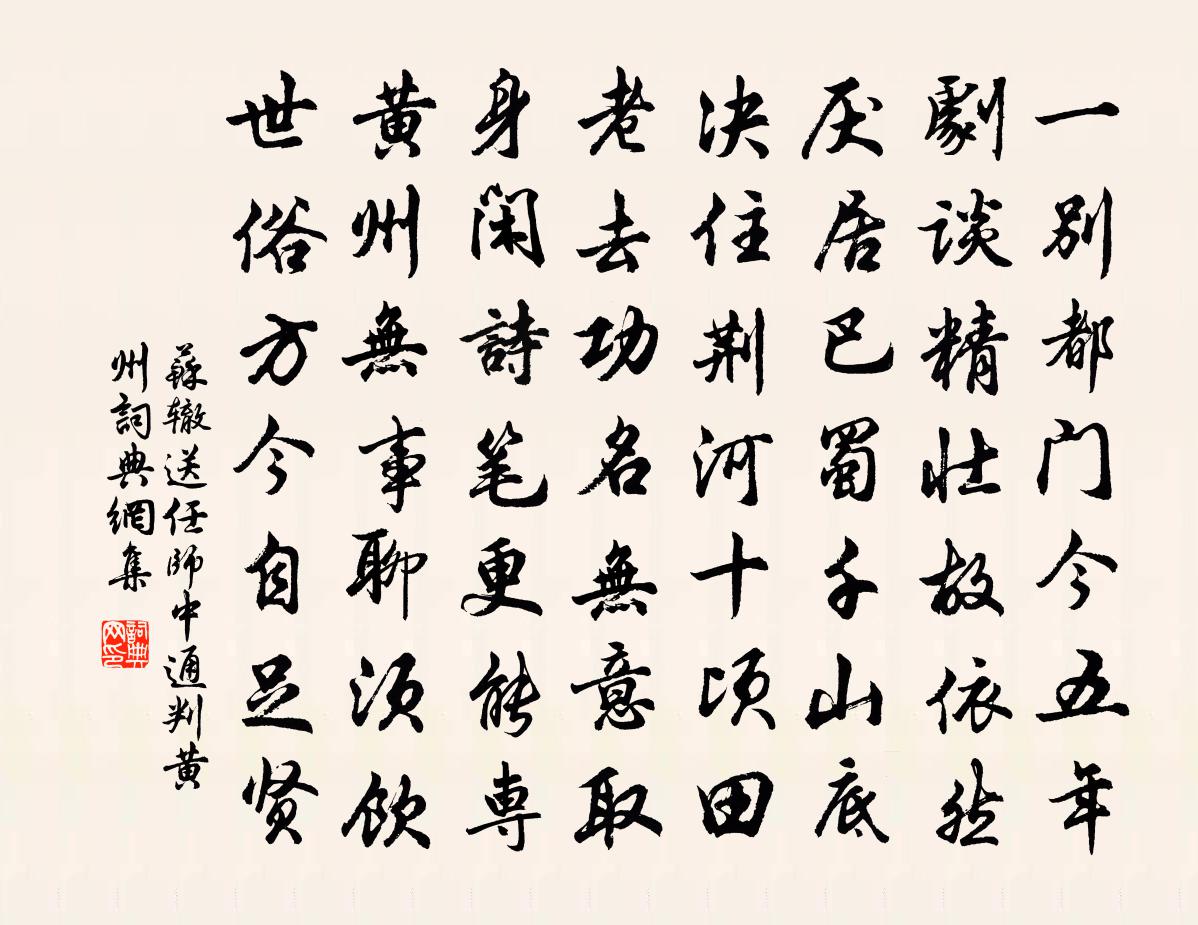 一别都门今五年
劇谈精壮故依然
厌居巴蜀千山底
决住荆河十顷田
老去功名無意取
身闲詩笔更能専
黄州無事聊须饮
世俗方今自足贤
蘇辙送任師中通判黄
州詞典網集
詞典网印